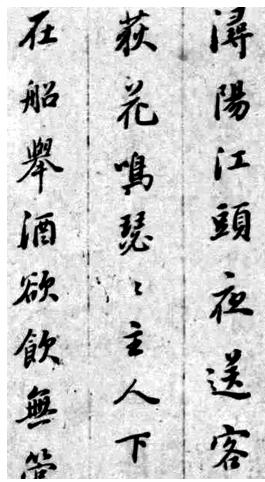 潯陽江頭夜送客
荻花鳴瑟〻主人下
在船舉酒欲飲無管